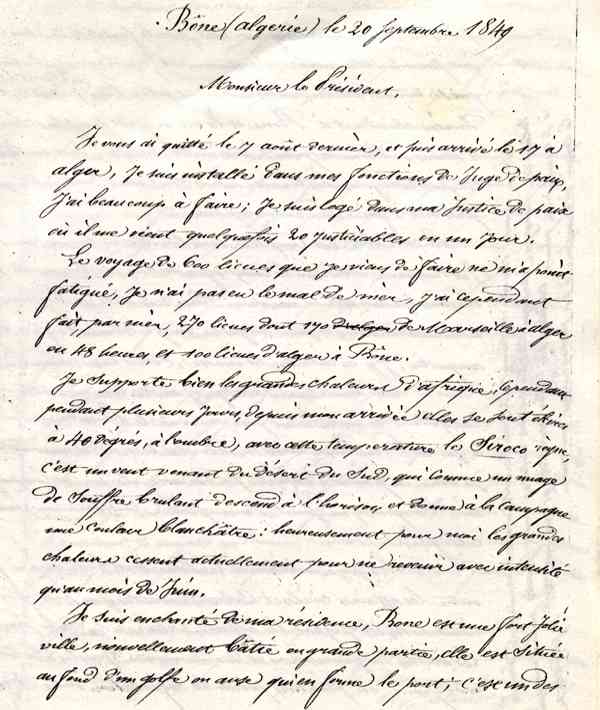 Bône (algérie) le 20 Septembre 1849
Monsieur le Président,
Je vous ai quitté le 7 août dernier, et puis arrivé le 17 à
alger, Je suis installé dans mes fonctions de Juge de paix,
J'ai beaucoup à faire ; Je suis logé dans ma Justice de paix
où il me vient quelquefois 20 justiciables en un Jour.
Le voyage de 600 lieues que Je viens de faire ne m'a point
fatigué, Je n'ai pas eu le mal de mer, J'ai cependant
fait par mer, 270 lieues dont 170 de Marseille à alger
en 48 heures, et 100 lieues d'alger à Bône.
Je supporte bien les grandes chaleurs d'afrique, Cependant
pendant plusieurs Jours, depuis mon arrivée elles se sont élevées
à 40 degrés, à l'ombre, avec cette température le Siroco règne,
c'est un vent venant du désert du Sud, qui comme un nuage
de Souffre brulant descend à l'horison, et donne à la campagne
une couleur blanchâtre : heureusement pour moi les grandes
chaleurs cessent actuellement pour ne revenir avec intensité
qu'au mois de Juin.
Je suis enchanté de ma résidence, Bone est une fort Jolie
ville, nouvellement bâtie en grande partie, elle est Située
au fond d'un golfe ou anse qui en forme le port ; c'est un des